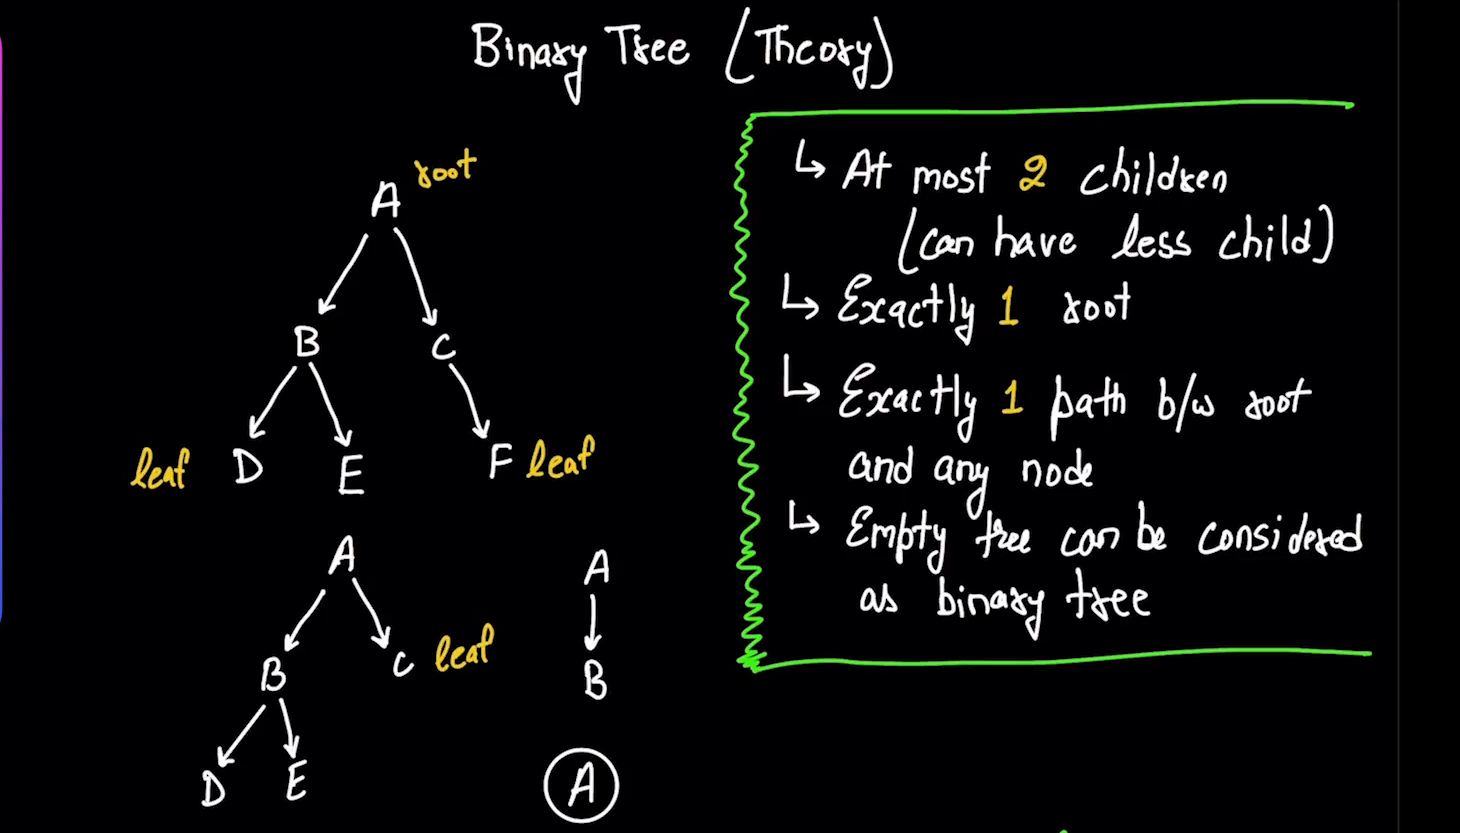 Binary Tree (Theory)
A root
B C
leaf D E F leaf
A
B C leaf
D E
A
B
A
↳ At most 2 children
(can have less child)
↳ Exactly 1 root
↳ Exactly 1 path b/w root
and any node
↳ Empty tree can be considered
as binary tree